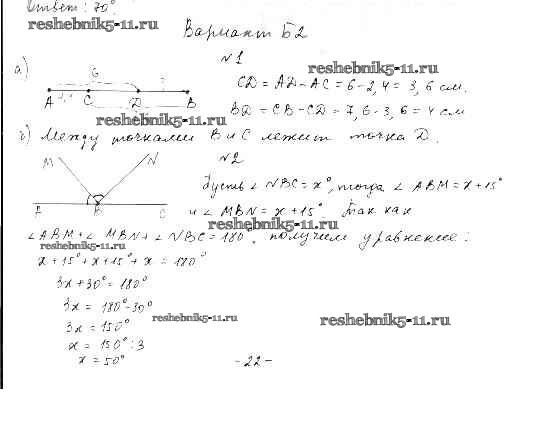 Ответ: 70°
reshebnik5-11.ru
Вариант Б2
№1
reshebnik5-11.ru
а)
6
A C D B
CD = AD - AC = 6 - 2,4 = 3,6 см.
BD = CB - CD = 7,6 - 3,6 = 4 см
reshebnik5-11.ru
б) Между точками B и C лежит точка D.
№2
M N
A B C
Пусть ∠NBC = x°, тогда ∠ABM = x+15°
и ∠MBN = x+15° Так как
reshebnik5-11.ru
∠ABM+∠MBN+∠NBC=180°, получим уравнение:
reshebnik5-11.ru
x+15°+x+15°+x = 180°
3x+30°=180°
3x = 180°-30°
3x = 150°
reshebnik5-11.ru
reshebnik5-11.ru
x = 150°:3
x = 50°
-22-